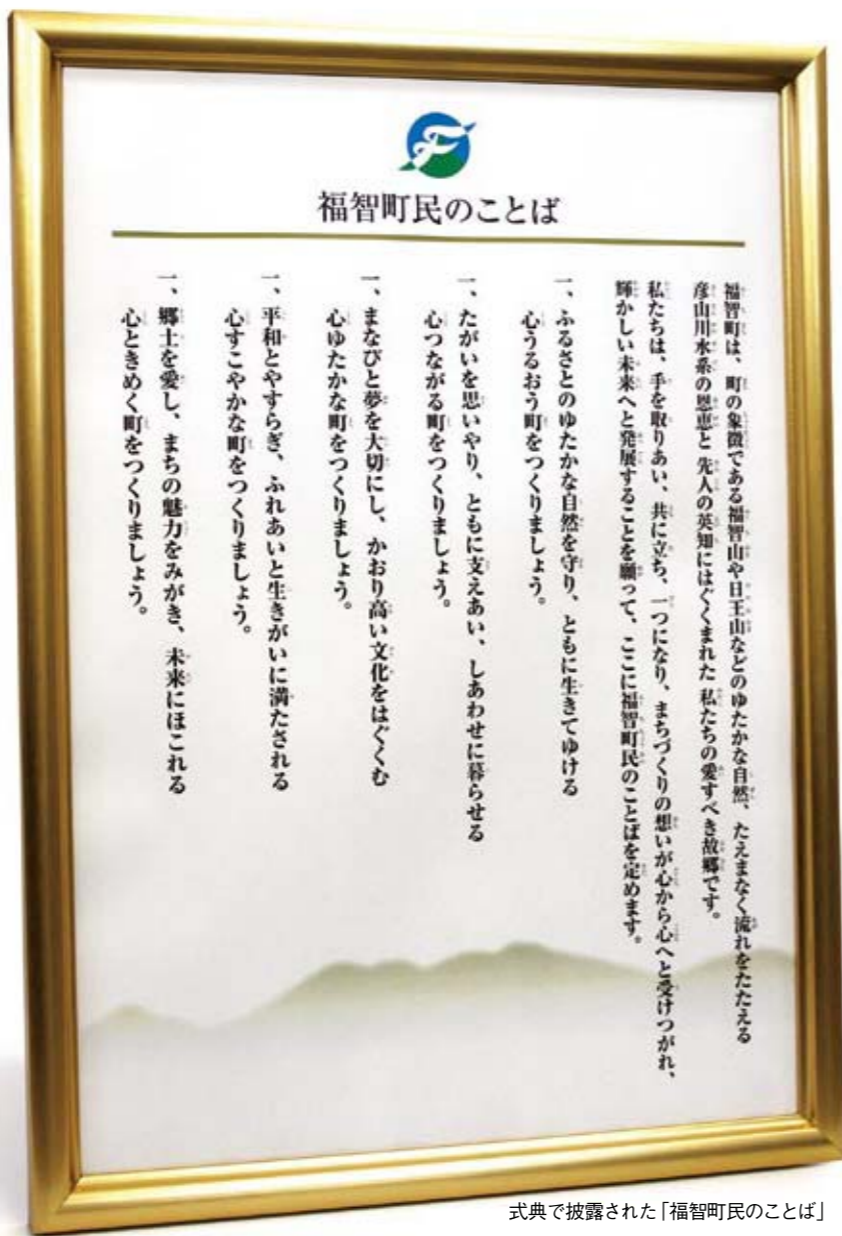 福智町民のことば
福智町は、町の象徴である福智山や日王山などのゆたかな自然、たえまなく流れをたたえる
彦山川水系の恩恵と 先人の英知にはぐくまれた 私たちの愛すべき故郷です。
私たちは、手を取りあい、共に立ち、一つになり、まちづくりの想いが心から心へと受けつがれ、
輝かしい未来へと発展することを願って、ここに福智町民のことばを定めます。
一、ふるさとのゆたかな自然を守り、ともに生きてゆける
心うるおう町をつくりましょう。
一、たがいを思いやり、ともに支えあい、しあわせに暮らせる
心つながる町をつくりましょう。
一、まなびと夢を大切にし、かおり高い文化をはぐくむ
心ゆたかな町をつくりましょう。
一、平和とやすらぎ、ふれあいと生きがいに満たされる
心すこやかな町をつくりましょう。
一、郷土を愛し、まちの魅力をみがき、未来にほこれる
心ときめく町をつくりましょう。
式典で披露された「福智町民のことば」